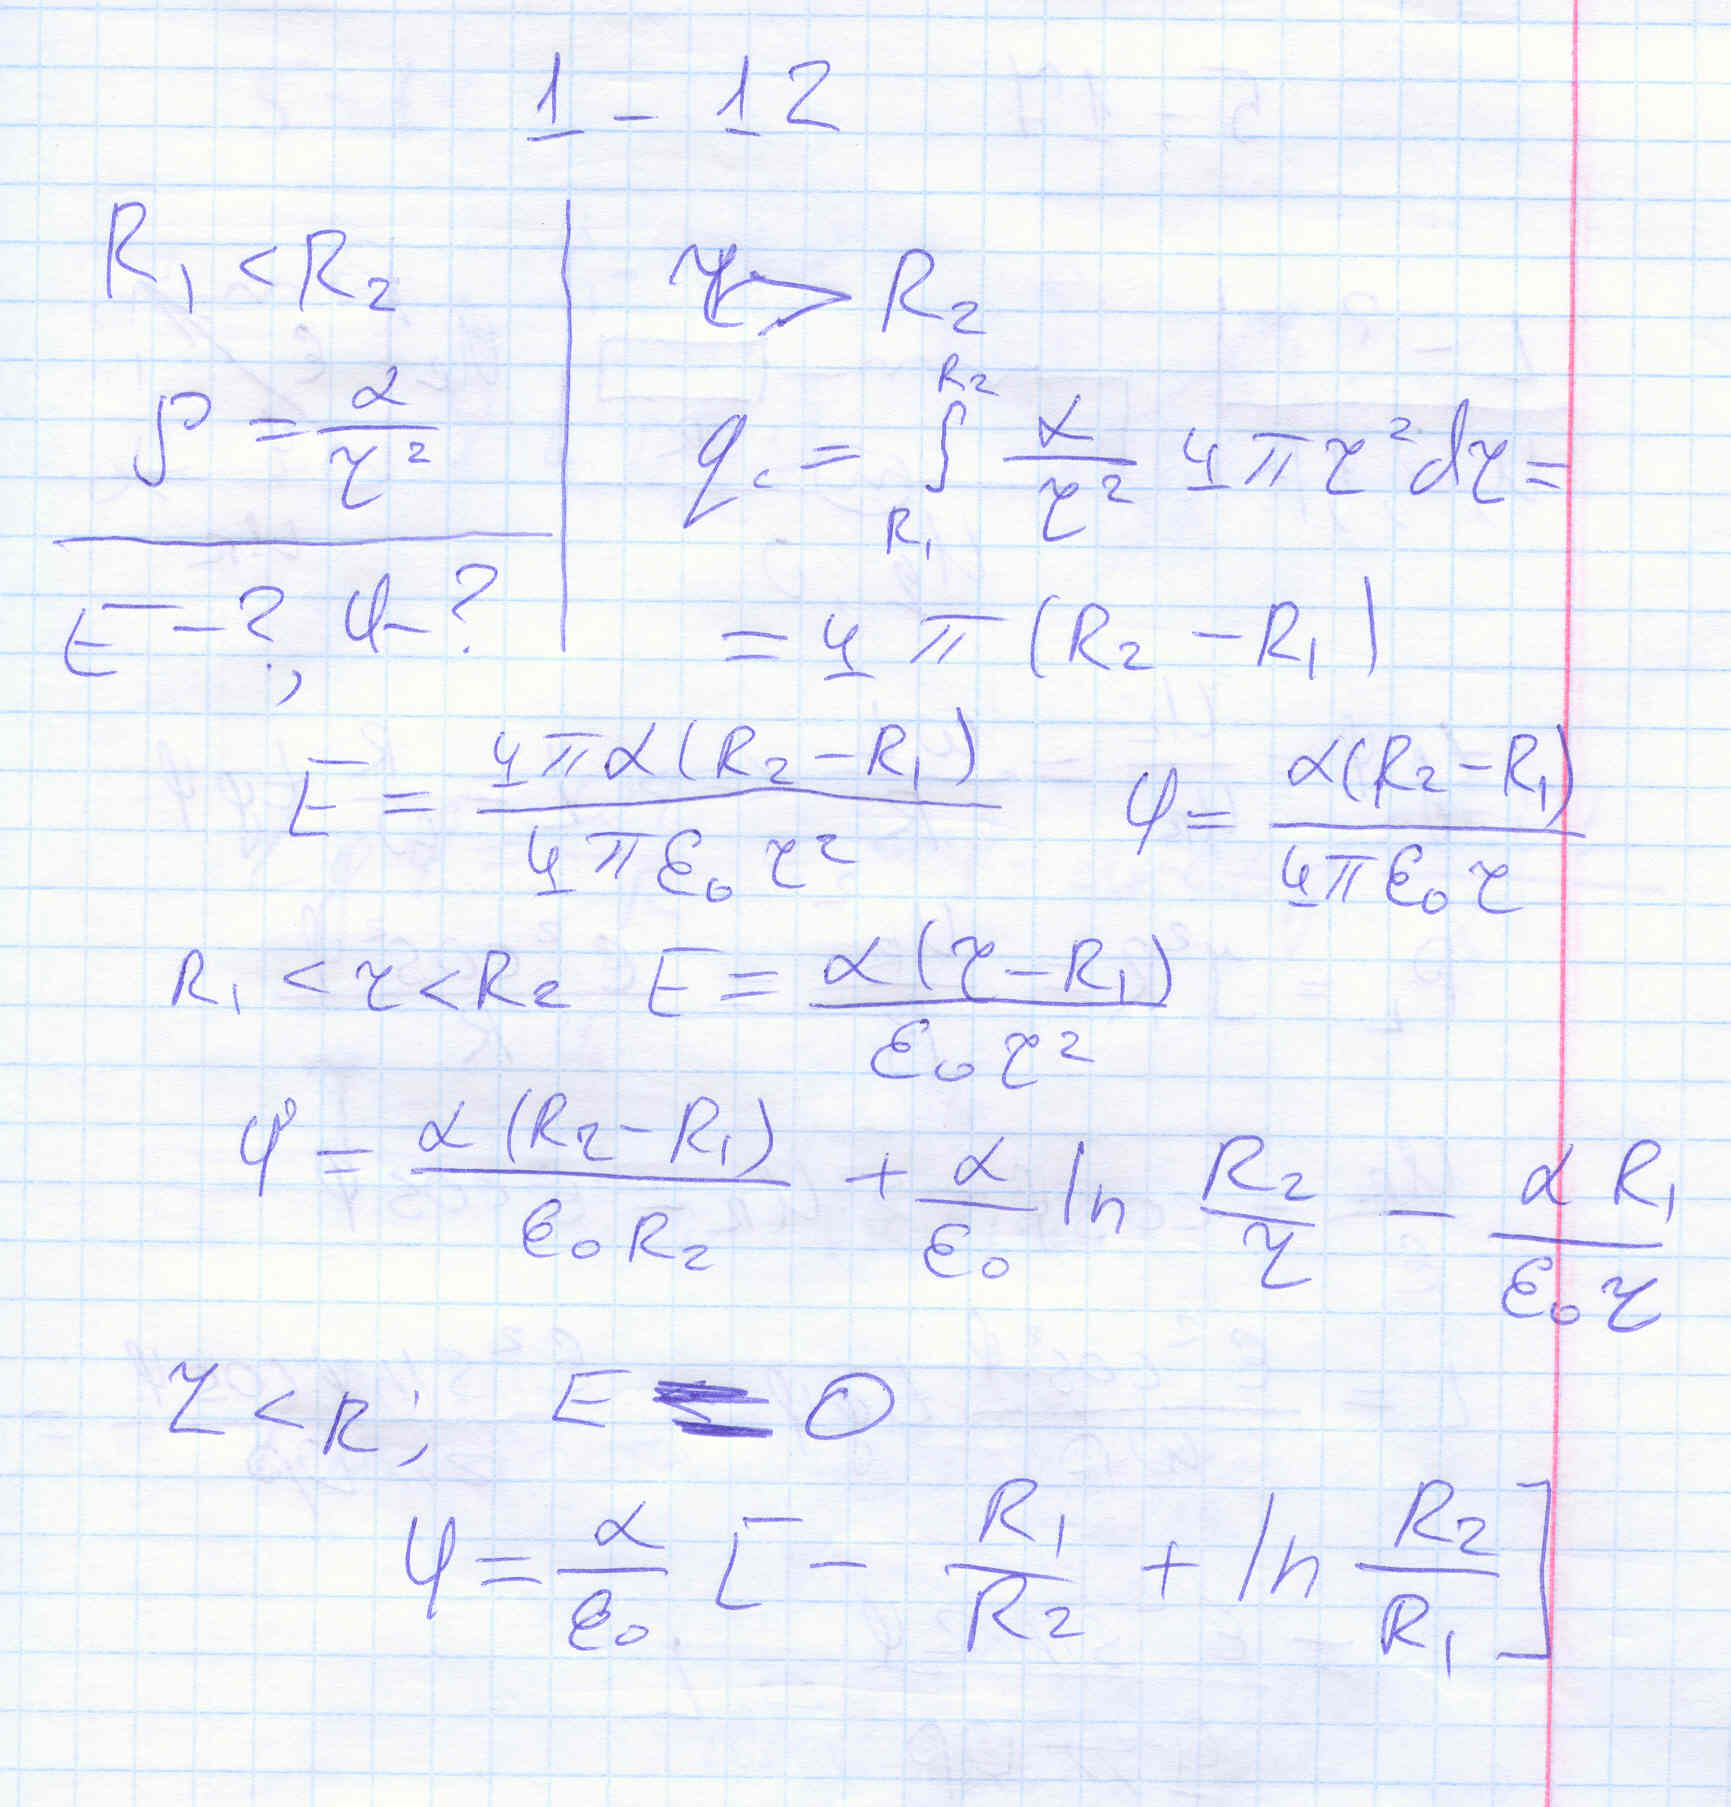 1 - 12
R₁ < R₂
ρ = α/r²
E - ?, φ - ?
r > R₂
q = ∫_{R₁}^{R₂} α/r² 4πr²dr =
= 4π(R₂ - R₁)
E = 4πα(R₂ - R₁)/4πε₀r² φ = α(R₂ - R₁)/4πε₀r
R₁ < r < R₂ E = α(r - R₁)/ε₀r²
φ = α(R₂ - R₁)/ε₀R₂ + α/ε₀ ln R₂/r - αR₁/ε₀r
r < R; E = 0
φ = α/ε₀ [- R₁/R₂ + ln R₂/R₁]